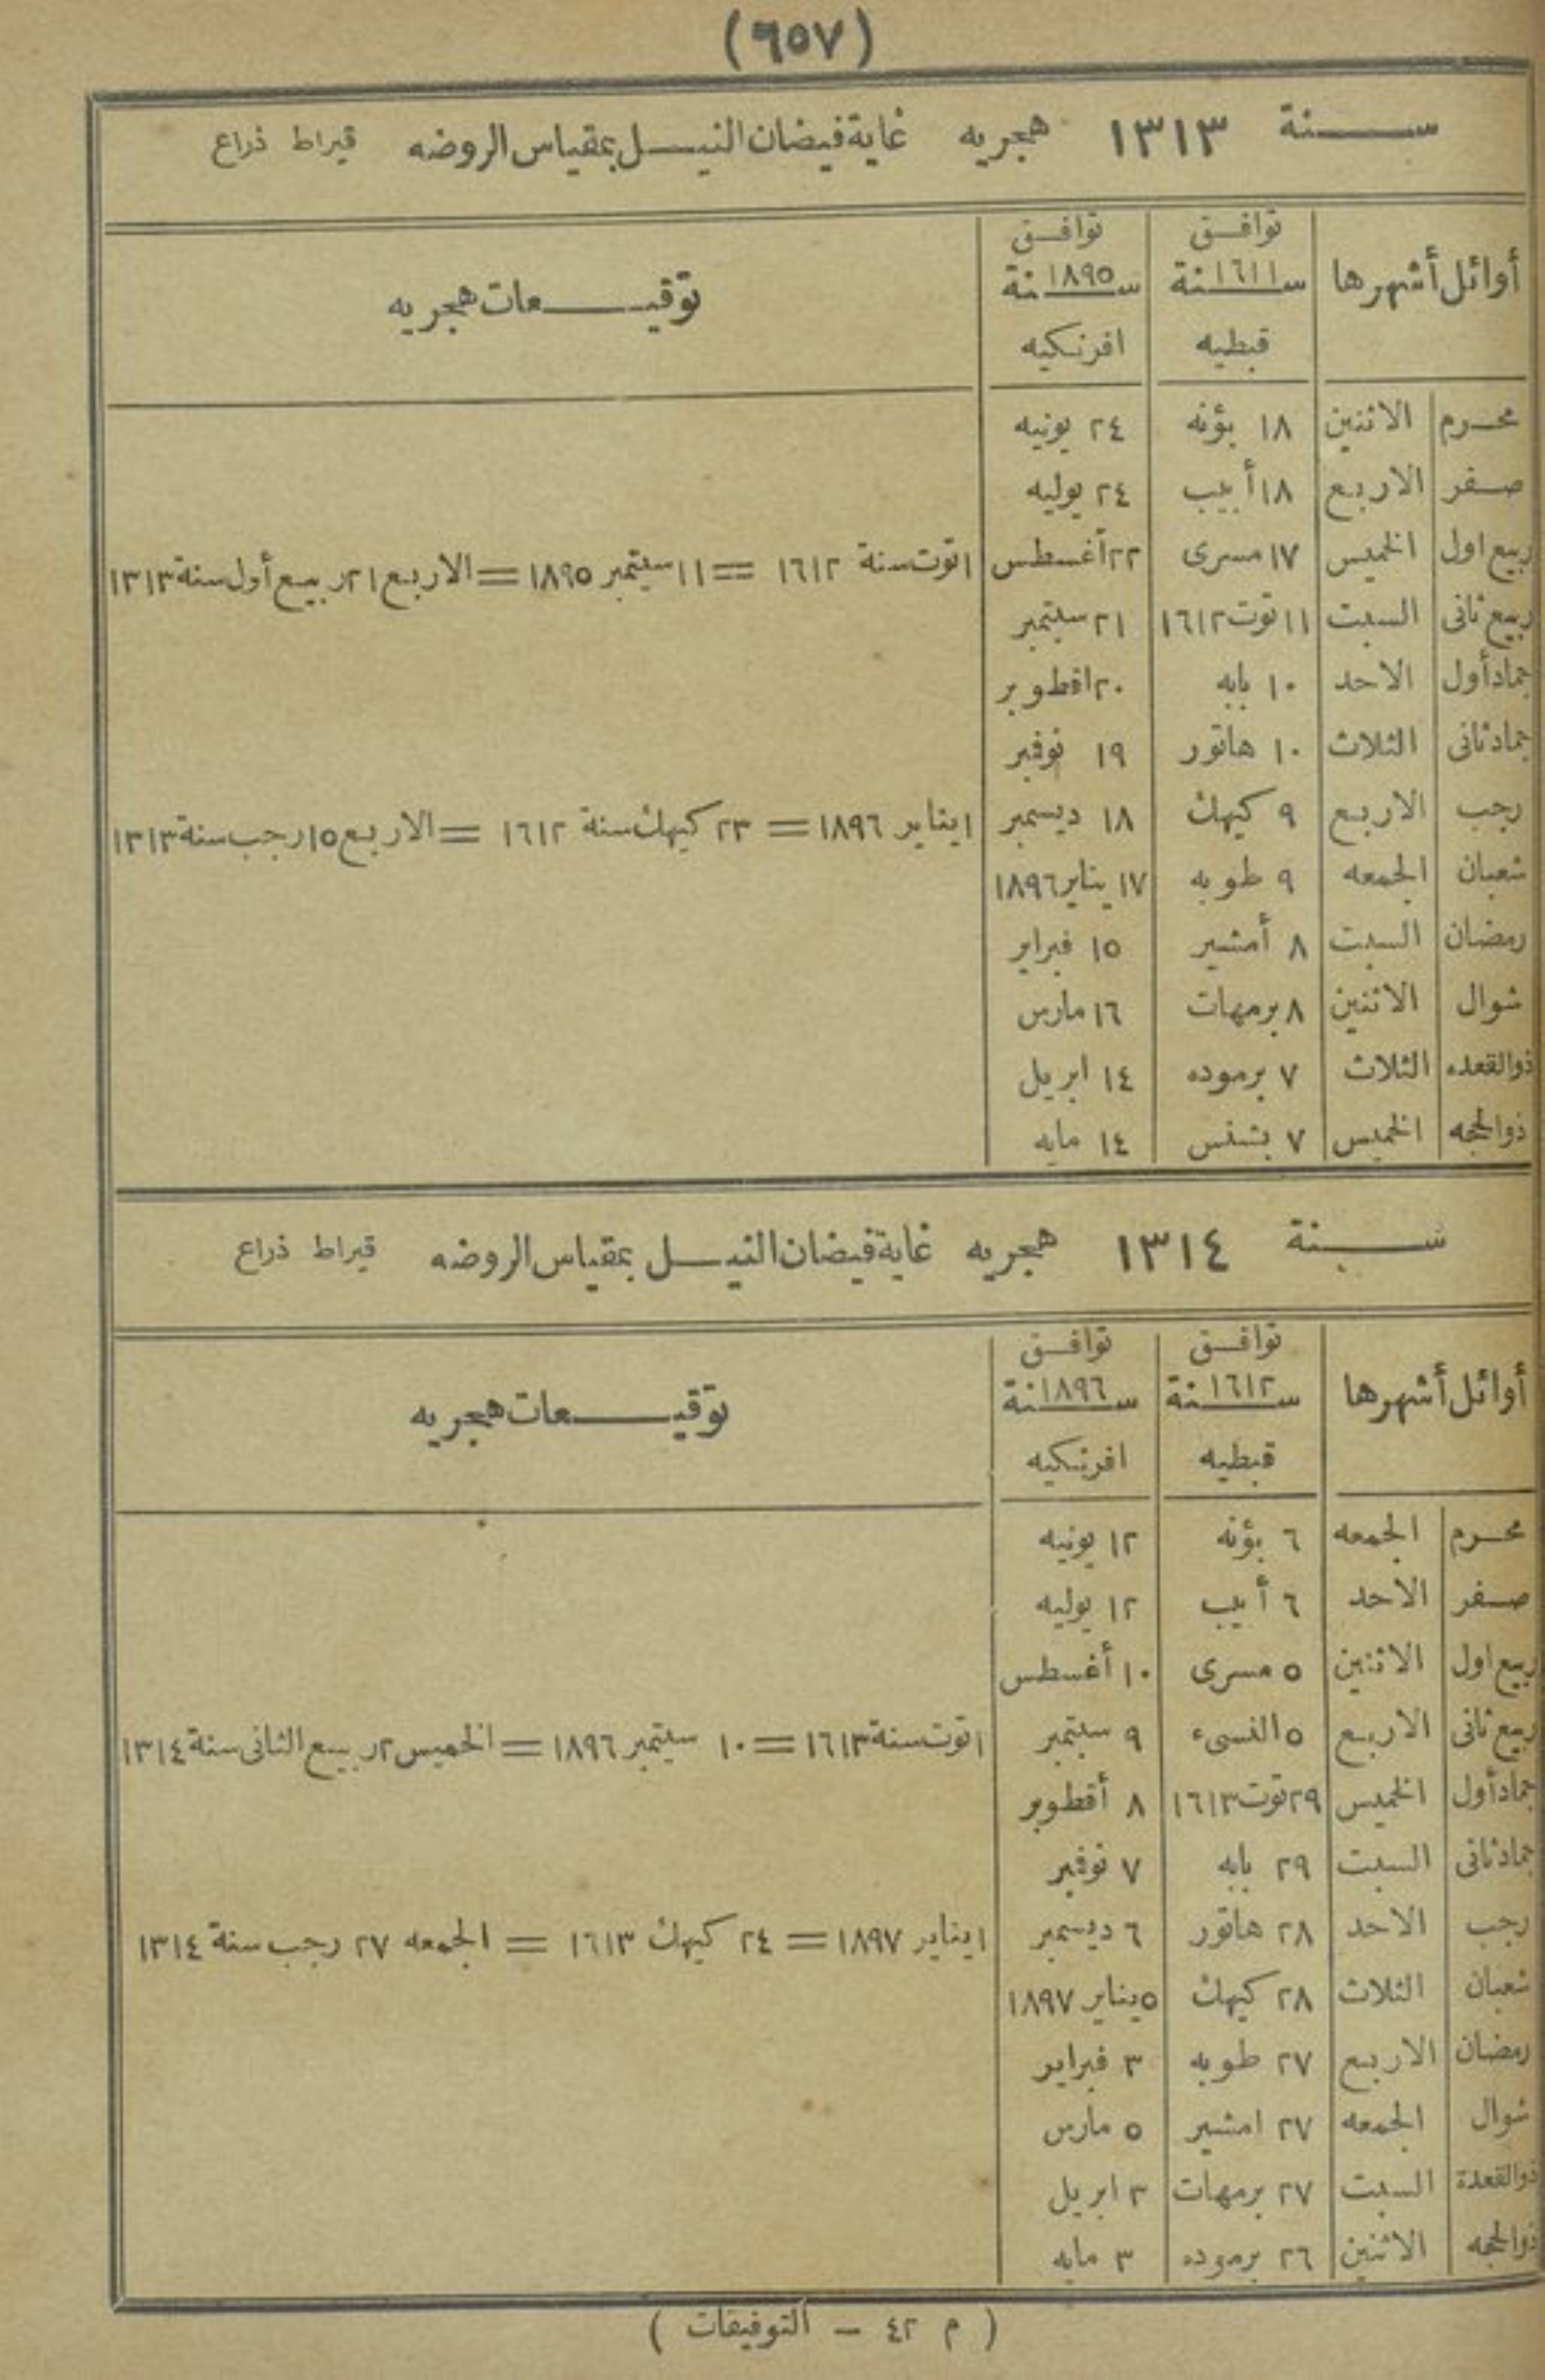 (٦٥٧)
سنة ١٣١٣ هجريه غاية فيضان النيل بمقياس الروضه قيراط ذراع
أوائل أشهرها توافق سنة ١٦١١ قبطيه توافق سنة ١٨٩٥ افرنكيه توقيعات هجريه
محرم الاثنين ١٨ بؤنه ٢٤ يونيه
صفر الاربع ١٨ أبيب ٢٤ يوليه
ربيع اول الخميس ١٧ مسرى ٢٢ أغسطس ١ توت سنة ١٦١٢ = ١١ سبتمبر ١٨٩٥ = الاربع ٢١ ربيع أول سنة ١٣١٣
ربيع ثانى السبت ١١ توت ١٦١٢ ٢١ سبتمبر
جماد أول الاحد ١٠ بابه ٢٠ اقطوبر
جماد ثانى الثلاث ١٠ هاتور ١٩ نوفمبر
رجب الاربع ٩ كيهك ١٨ ديسمبر ١ يناير ١٨٩٦ = ٢٣ كيهك سنة ١٦١٢ = الاربع ١٥ رجب سنة ١٣١٣
شعبان الجمعه ٩ طوبه ١٧ يناير ١٨٩٦
رمضان السبت ٨ أمشير ١٥ فبراير
شوال الاثنين ٨ برمهات ١٦ مارس
ذوالقعده الثلاث ٧ برموده ١٤ ابريل
ذوالحجه الخميس ٧ بشنس ١٤ مايه
سنة ١٣١٤ هجريه غاية فيضان النيل بمقياس الروضه قيراط ذراع
أوائل أشهرها توافق سنة ١٦١٢ قبطيه توافق سنة ١٨٩٦ افرنكيه توقيعات هجريه
محرم الجمعه ٦ بؤنه ١٢ يونيه
صفر الاحد ٦ أبيب ١٢ يوليه
ربيع اول الاثنين ٥ مسرى ١٠ أغسطس
ربيع ثانى الاربع ٥ النسىء ٩ سبتمبر ١ توت سنة ١٦١٣ = ١٠ سبتمبر ١٨٩٦ = الخميس ٢ ربيع الثانى سنة ١٣١٤
جماد أول الخميس ٢٩ توت ١٦١٣ ٨ أقطوبر
جماد ثانى السبت ٢٩ بابه ٧ نوفمبر
رجب الاحد ٢٨ هاتور ٦ ديسمبر ١ يناير ١٨٩٧ = ٢٤ كيهك ١٦١٣ = الجمعه ٢٧ رجب سنة ١٣١٤
شعبان الثلاث ٢٨ كيهك ٥ يناير ١٨٩٧
رمضان الاربع ٢٧ طوبه ٣ فبراير
شوال الجمعه ٢٧ امشير ٥ مارس
ذوالقعدة السبت ٢٧ برمهات ٣ ابريل
ذوالحجه الاثنين ٢٦ برموده ٣ مايه
( م ٤٢ – التوفيقات )